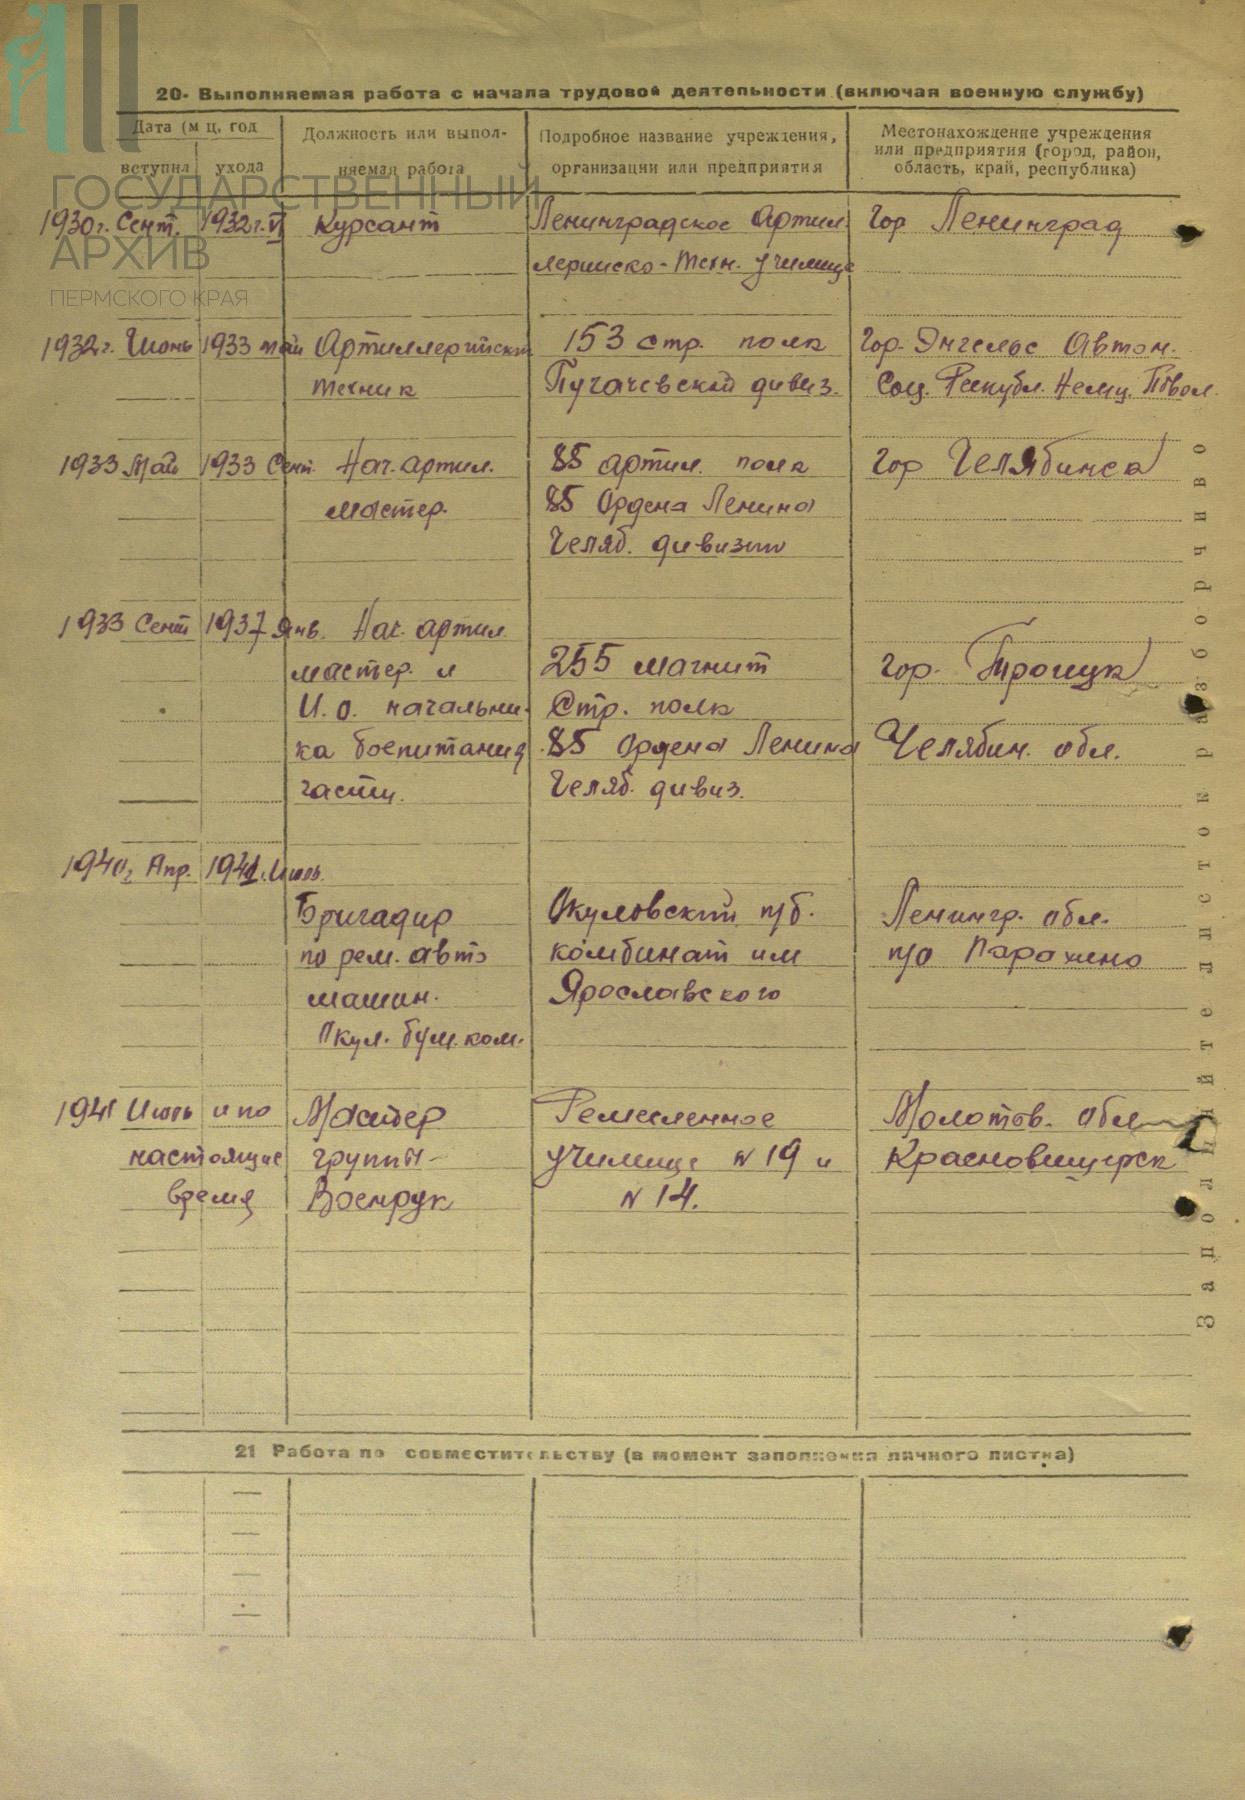 ГОСУДАРСТВЕННЫЙ
АРХИВ
ПЕРМСКОГО КРАЯ
20- Выполняемая работа с начала трудовой деятельности (включая военную службу)
Дата (м ц, год
вступил ухода
Должность или выпол-
няемая работа
Подробное название учреждения,
организации или предприятия
Местонахождение учреждения
или предприятия (город, район,
область, край, республика)
1930г. Сент. 1932г. VI Курсант Ленинградское Артил. Гор Ленинград
лерийско-техн. училище
1932г. Июнь 1933 май Артиллерийский 153 стр. полк Гор. Энгельс Автон.
техник Пугачевской дивиз. Соц. Республ. Немц. Повол.
1933 Май 1933 Сент. Нач. артил. 85 артил. полк Гор Челябинск
мастер. 85 Ордена Ленина
Челяб. дивизии
1933 Сент 1937 Янв. Нач. артил.
мастер. и 255 магнит Гор. Троицк
И. о. начальни- Стр. полк
ка боепитания 85 Ордена Ленина Челябин. обл.
части. Челяб. дивиз.
1940г. Апр. 1941г. Июль.
Бригадир Окуловский п/б. Ленингр. обл.
по рем. авто комбинат им п/о Парахино
машин. Ярославского
Окул. бум. ком.
1941 Июль и по Мастер Ремесленное Молотов. обл
настоящее группы- училище N 19 и Красновишерск
время Военрук N 14.
21 Работа по совместительству (в момент заполнения личного листка)
Заполняйте листок разборчиво